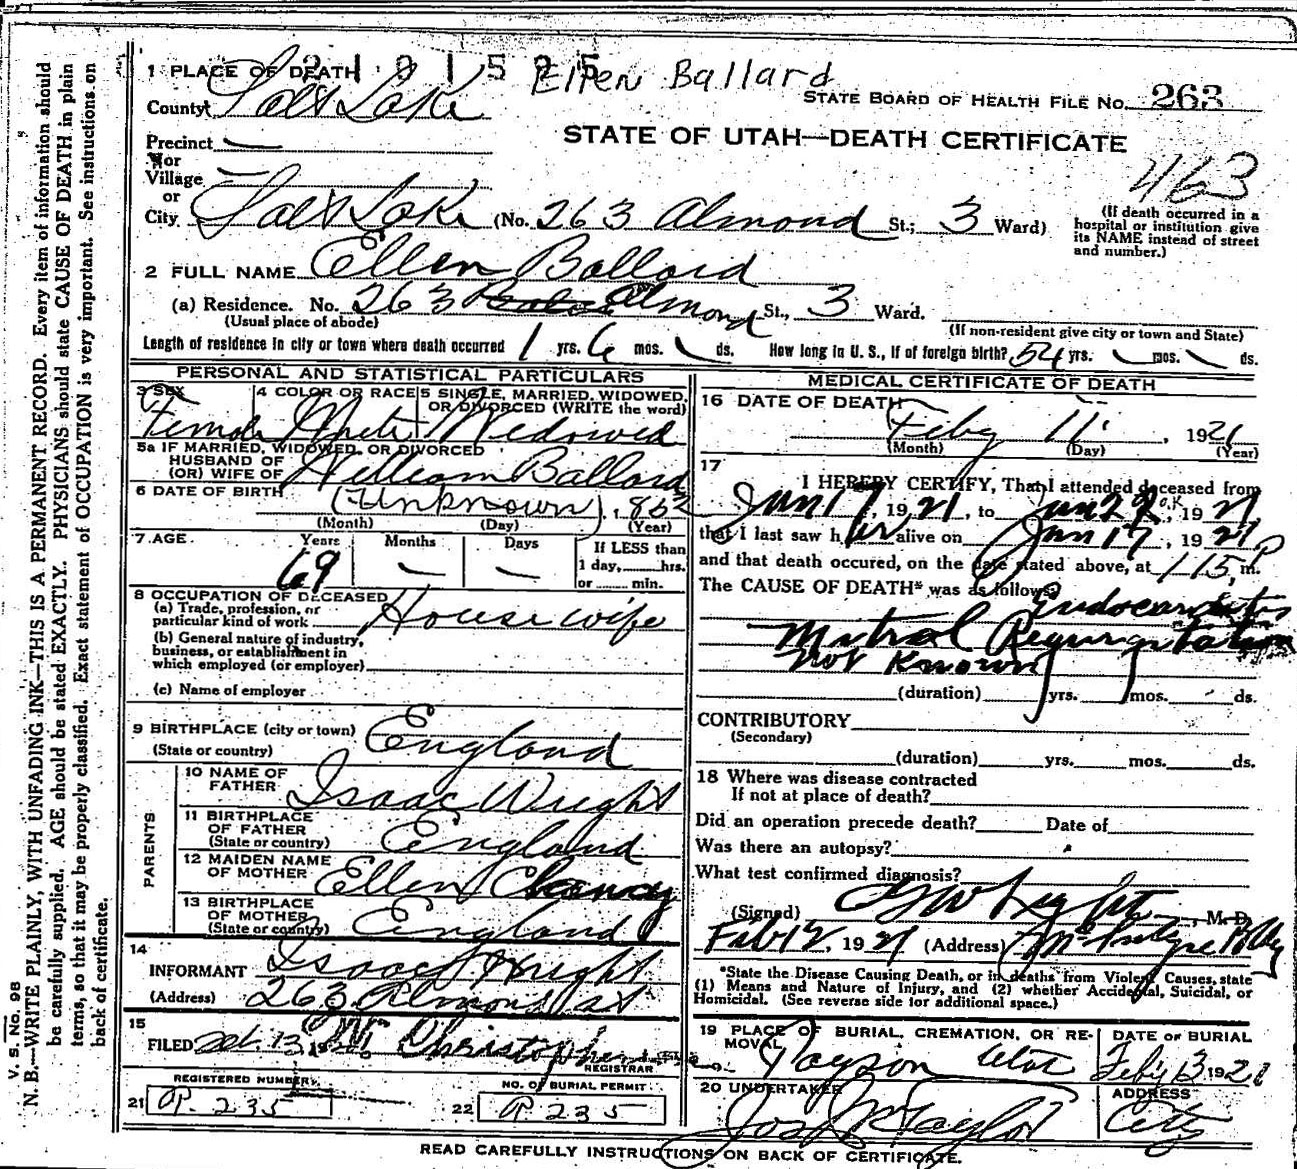 2101525 Ellen Ballard
1 PLACE OF DEATH
County Salt Lake
STATE BOARD OF HEALTH FILE No. 263
STATE OF UTAH—DEATH CERTIFICATE
463
Precinct —
or
Village —
or
City Salt Lake (No. 263 Almond St.; 3 Ward)
(If death occurred in a
hospital or institution give
its NAME instead of street
and number.)
2 FULL NAME Ellen Ballard
(a) Residence. No. 263 Almond St., 3 Ward.
(Usual place of abode) (If non-resident give city or town and State)
Length of residence in city or town where death occurred 1 yrs. 6 mos. ds. How long in U. S., if of foreign birth? 54 yrs. mos. ds.
PERSONAL AND STATISTICAL PARTICULARS
3 SEX 4 COLOR OR RACE 5 SINGLE, MARRIED, WIDOWED,
OR DIVORCED (WRITE the word)
Female White Widowed
5a IF MARRIED, WIDOWED, OR DIVORCED
HUSBAND OF
(OR) WIFE OF William Ballard
6 DATE OF BIRTH (Unknown), 1852
(Month) (Day) (Year)
7 AGE Years Months Days If LESS than
69 — — 1 day, hrs.
or min.
8 OCCUPATION OF DECEASED
(a) Trade, profession, or
particular kind of work Housewife
(b) General nature of industry,
business, or establishment in
which employed (or employer)
(c) Name of employer
9 BIRTHPLACE (city or town)
(State or country) England
PARENTS
10 NAME OF
FATHER Isaac Wright
11 BIRTHPLACE
OF FATHER
(State or country) England
12 MAIDEN NAME
OF MOTHER Ellen
13 BIRTHPLACE
OF MOTHER
(State or country) England
14
INFORMANT Isaac Wright
(Address) 263 Almond st
15
FILED Feb. 13, 1921 Christopherson
REGISTRAR
REGISTERED NUMBER NO. OF BURIAL PERMIT
21 P. 235 22 P 235
MEDICAL CERTIFICATE OF DEATH
16 DATE OF DEATH
Feby 11, 1921
(Month) (Day) (Year)
17
I HEREBY CERTIFY, That I attended deceased from
Jan 17, 1921, to Jan 22, 1921
that I last saw her alive on Jan 17, 1921
and that death occured, on the date stated above, at 115 P m.
The CAUSE OF DEATH* was as follows:
Endocarditis
Mitral Regurgitation
not known
(duration) yrs. mos. ds.
CONTRIBUTORY
(Secondary)
(duration) yrs. mos. ds.
18 Where was disease contracted
If not at place of death?
Did an operation precede death? Date of
Was there an autopsy?
What test confirmed diagnosis?
(Signed) , M. D.
Feb 12, 1921 (Address) McIntyre Bldg
*State the Disease Causing Death, or in deaths from Violent Causes, state
(1) Means and Nature of Injury, and (2) whether Accidental, Suicidal, or
Homicidal. (See reverse side for additional space.)
19 PLACE OF BURIAL, CREMATION, OR RE- DATE OF BURIAL
MOVAL Payson Utah Feby 13 1921
20 UNDERTAKER ADDRESS
Jos Taylor City
READ CAREFULLY INSTRUCTIONS ON BACK OF CERTIFICATE.
V. S. No. 98
N. B.—WRITE PLAINLY, WITH UNFADING INK—THIS IS A PERMANENT RECORD. Every item of information should
be carefully supplied. AGE should be stated EXACTLY. PHYSICIANS should state CAUSE OF DEATH in plain
terms, so that it may be properly classified. Exact statement of OCCUPATION is very important. See instructions on
back of certificate.